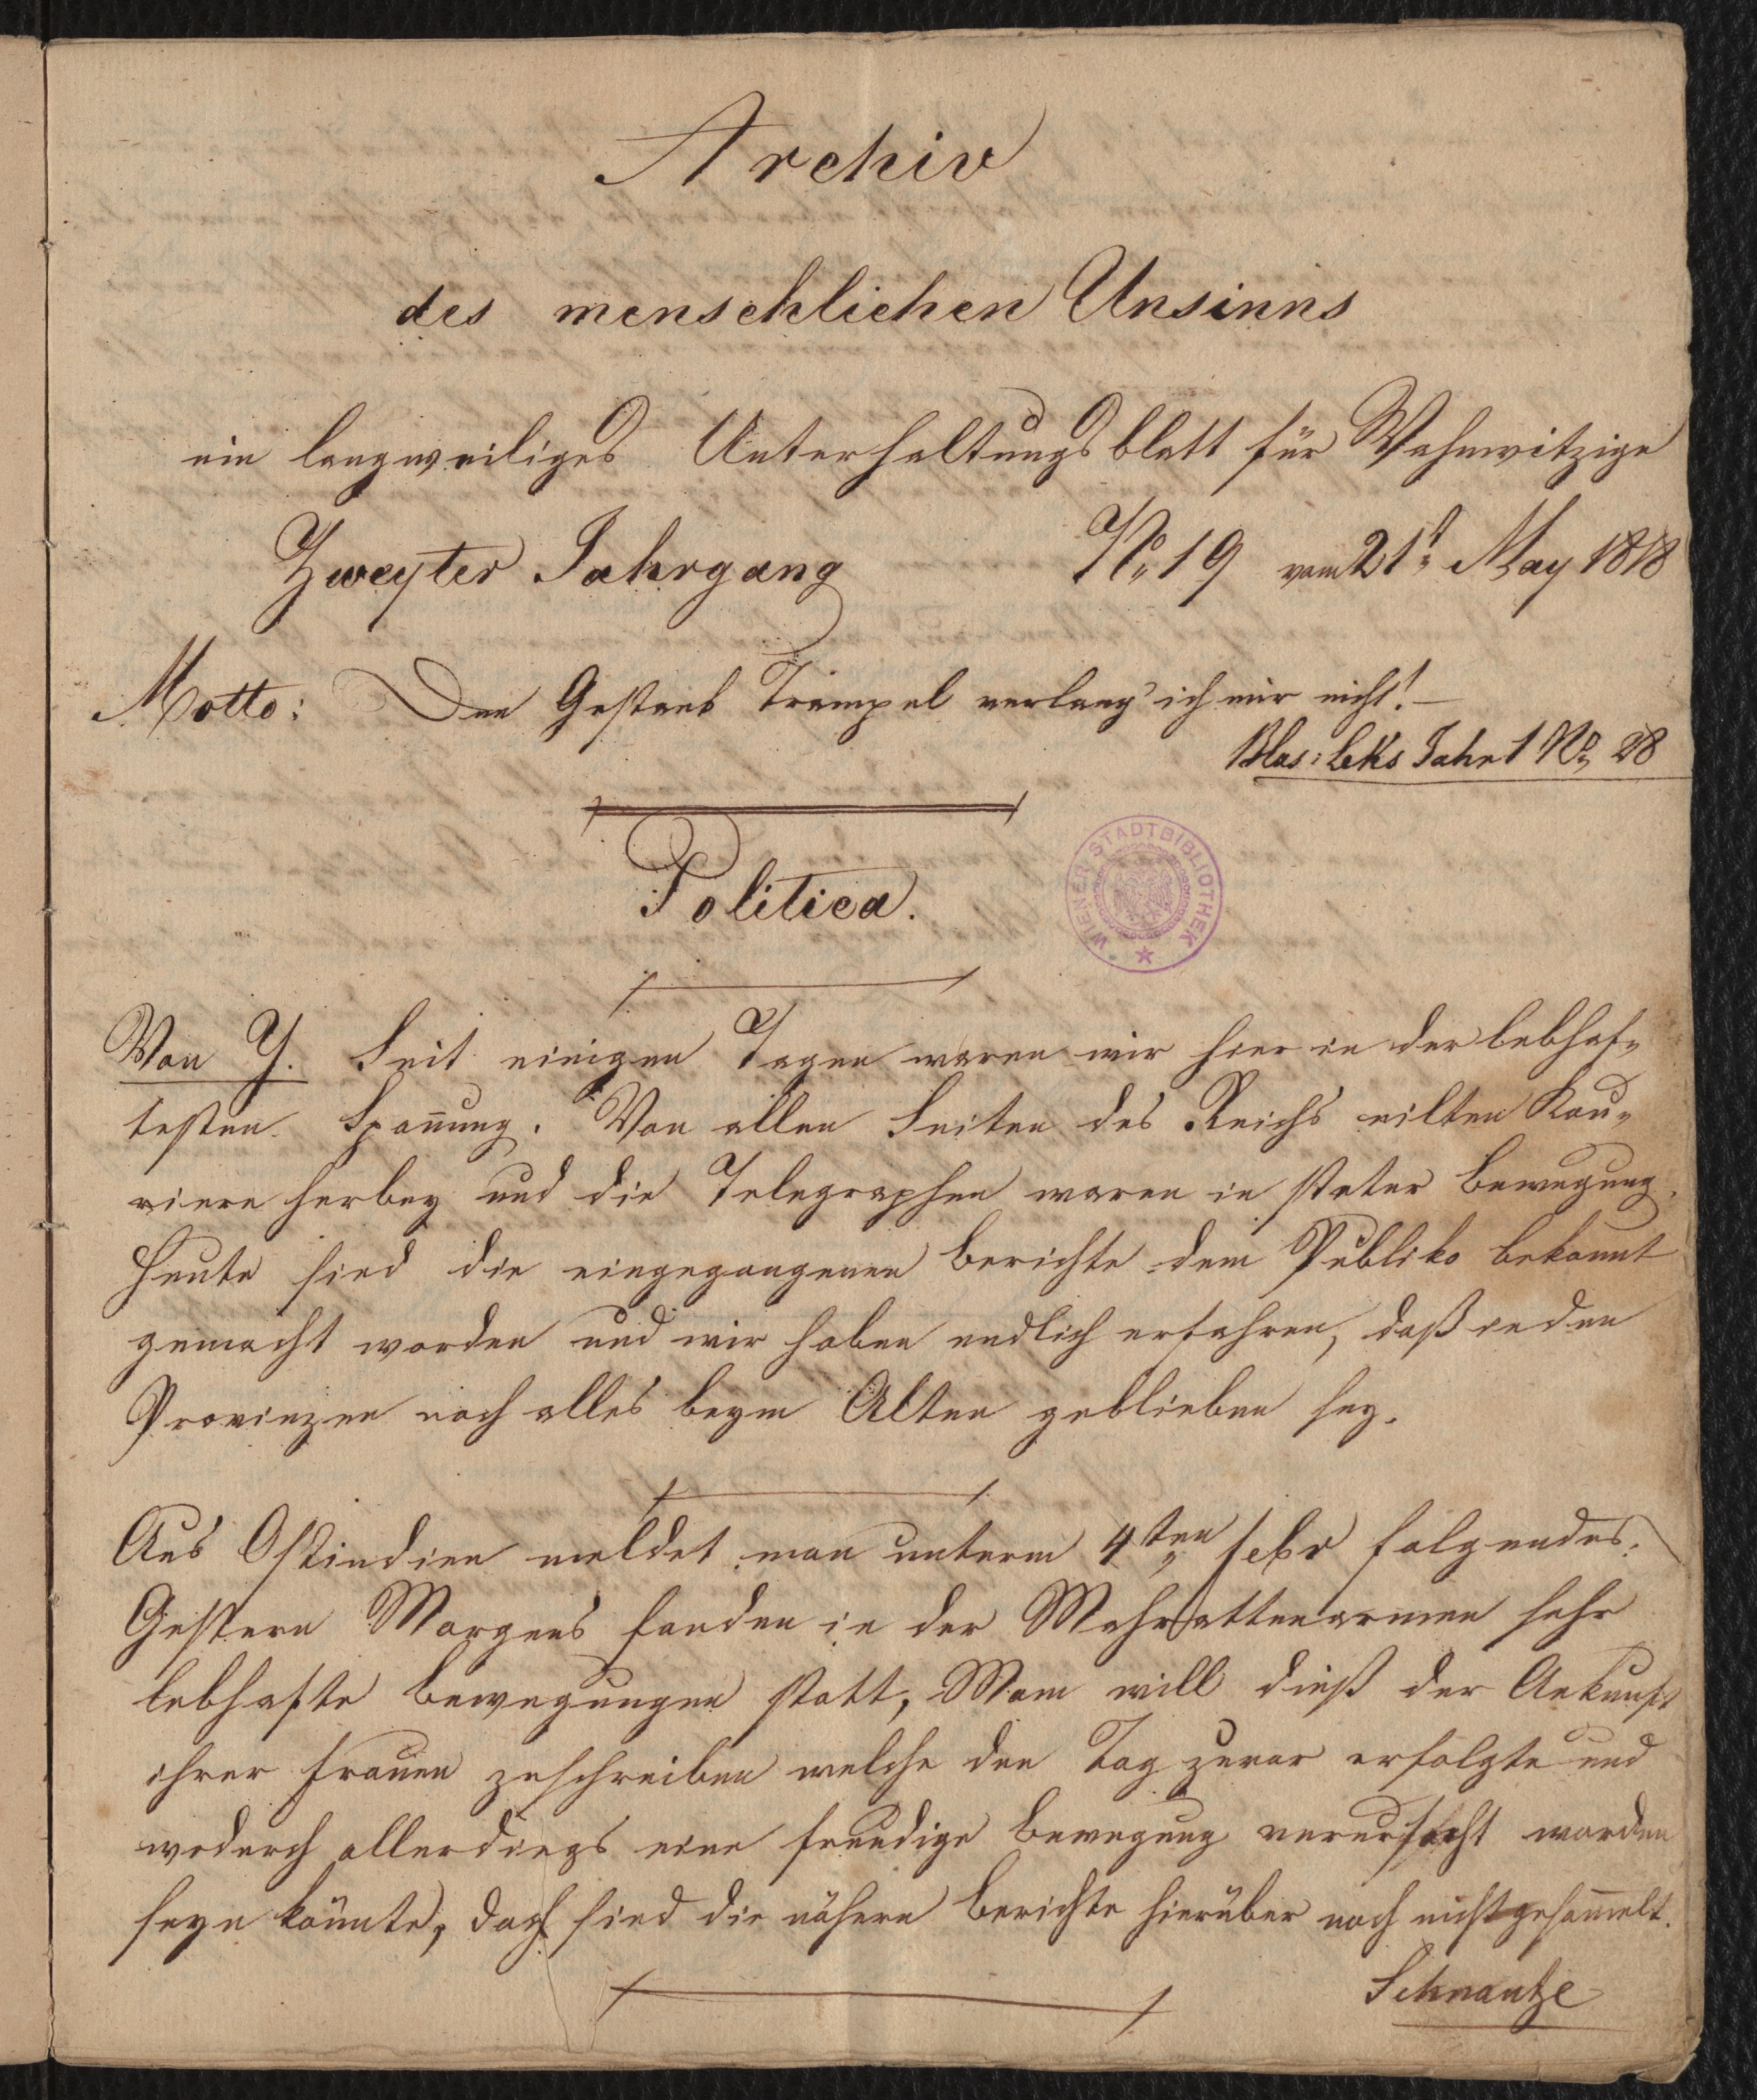 Archiv
des menschlichen Unsinns
ein langweiliges Unterhaltungsblatt für Wahnwitzige
Zweyter Jahrgang No 19 vom 21t May 1818
Motto: Den Gestank Trampel verlang' ich mir nicht! —
Blas: Leks Jahr 1 No 28
Politica.
WIENER STADTBIBLIOTHEK
Von Y. Seit einigen Tagen waren wir hier in der lebhaf„
testen Spañung. Von allen Seiten des Reichs eilten Kou„
riere herbey und die Telegraphen waren in steter Bewegung.
Heute sind die eingegangenen Berichte dem Publiko bekannt
gemacht worden und wir haben endlich erfahren, daß in den
Provinzen noch alles beym Alten geblieben sey.
Aus Ostindien meldet man unterm 4ten Febr folgendes:
Gestern Morgens fanden in der Mahrattenarmee sehr
lebhafte Bewegungen statt, Man will dieß der Ankunft
ihrer Frauen zuschreiben welche den Tag zuvor erfolgte und
wodurch allerdings eine freudige Bewegung verursacht worden
seyn könnte, doch sind die nähern Berichte hierüber noch nicht gesam̄elt.
Schnautze